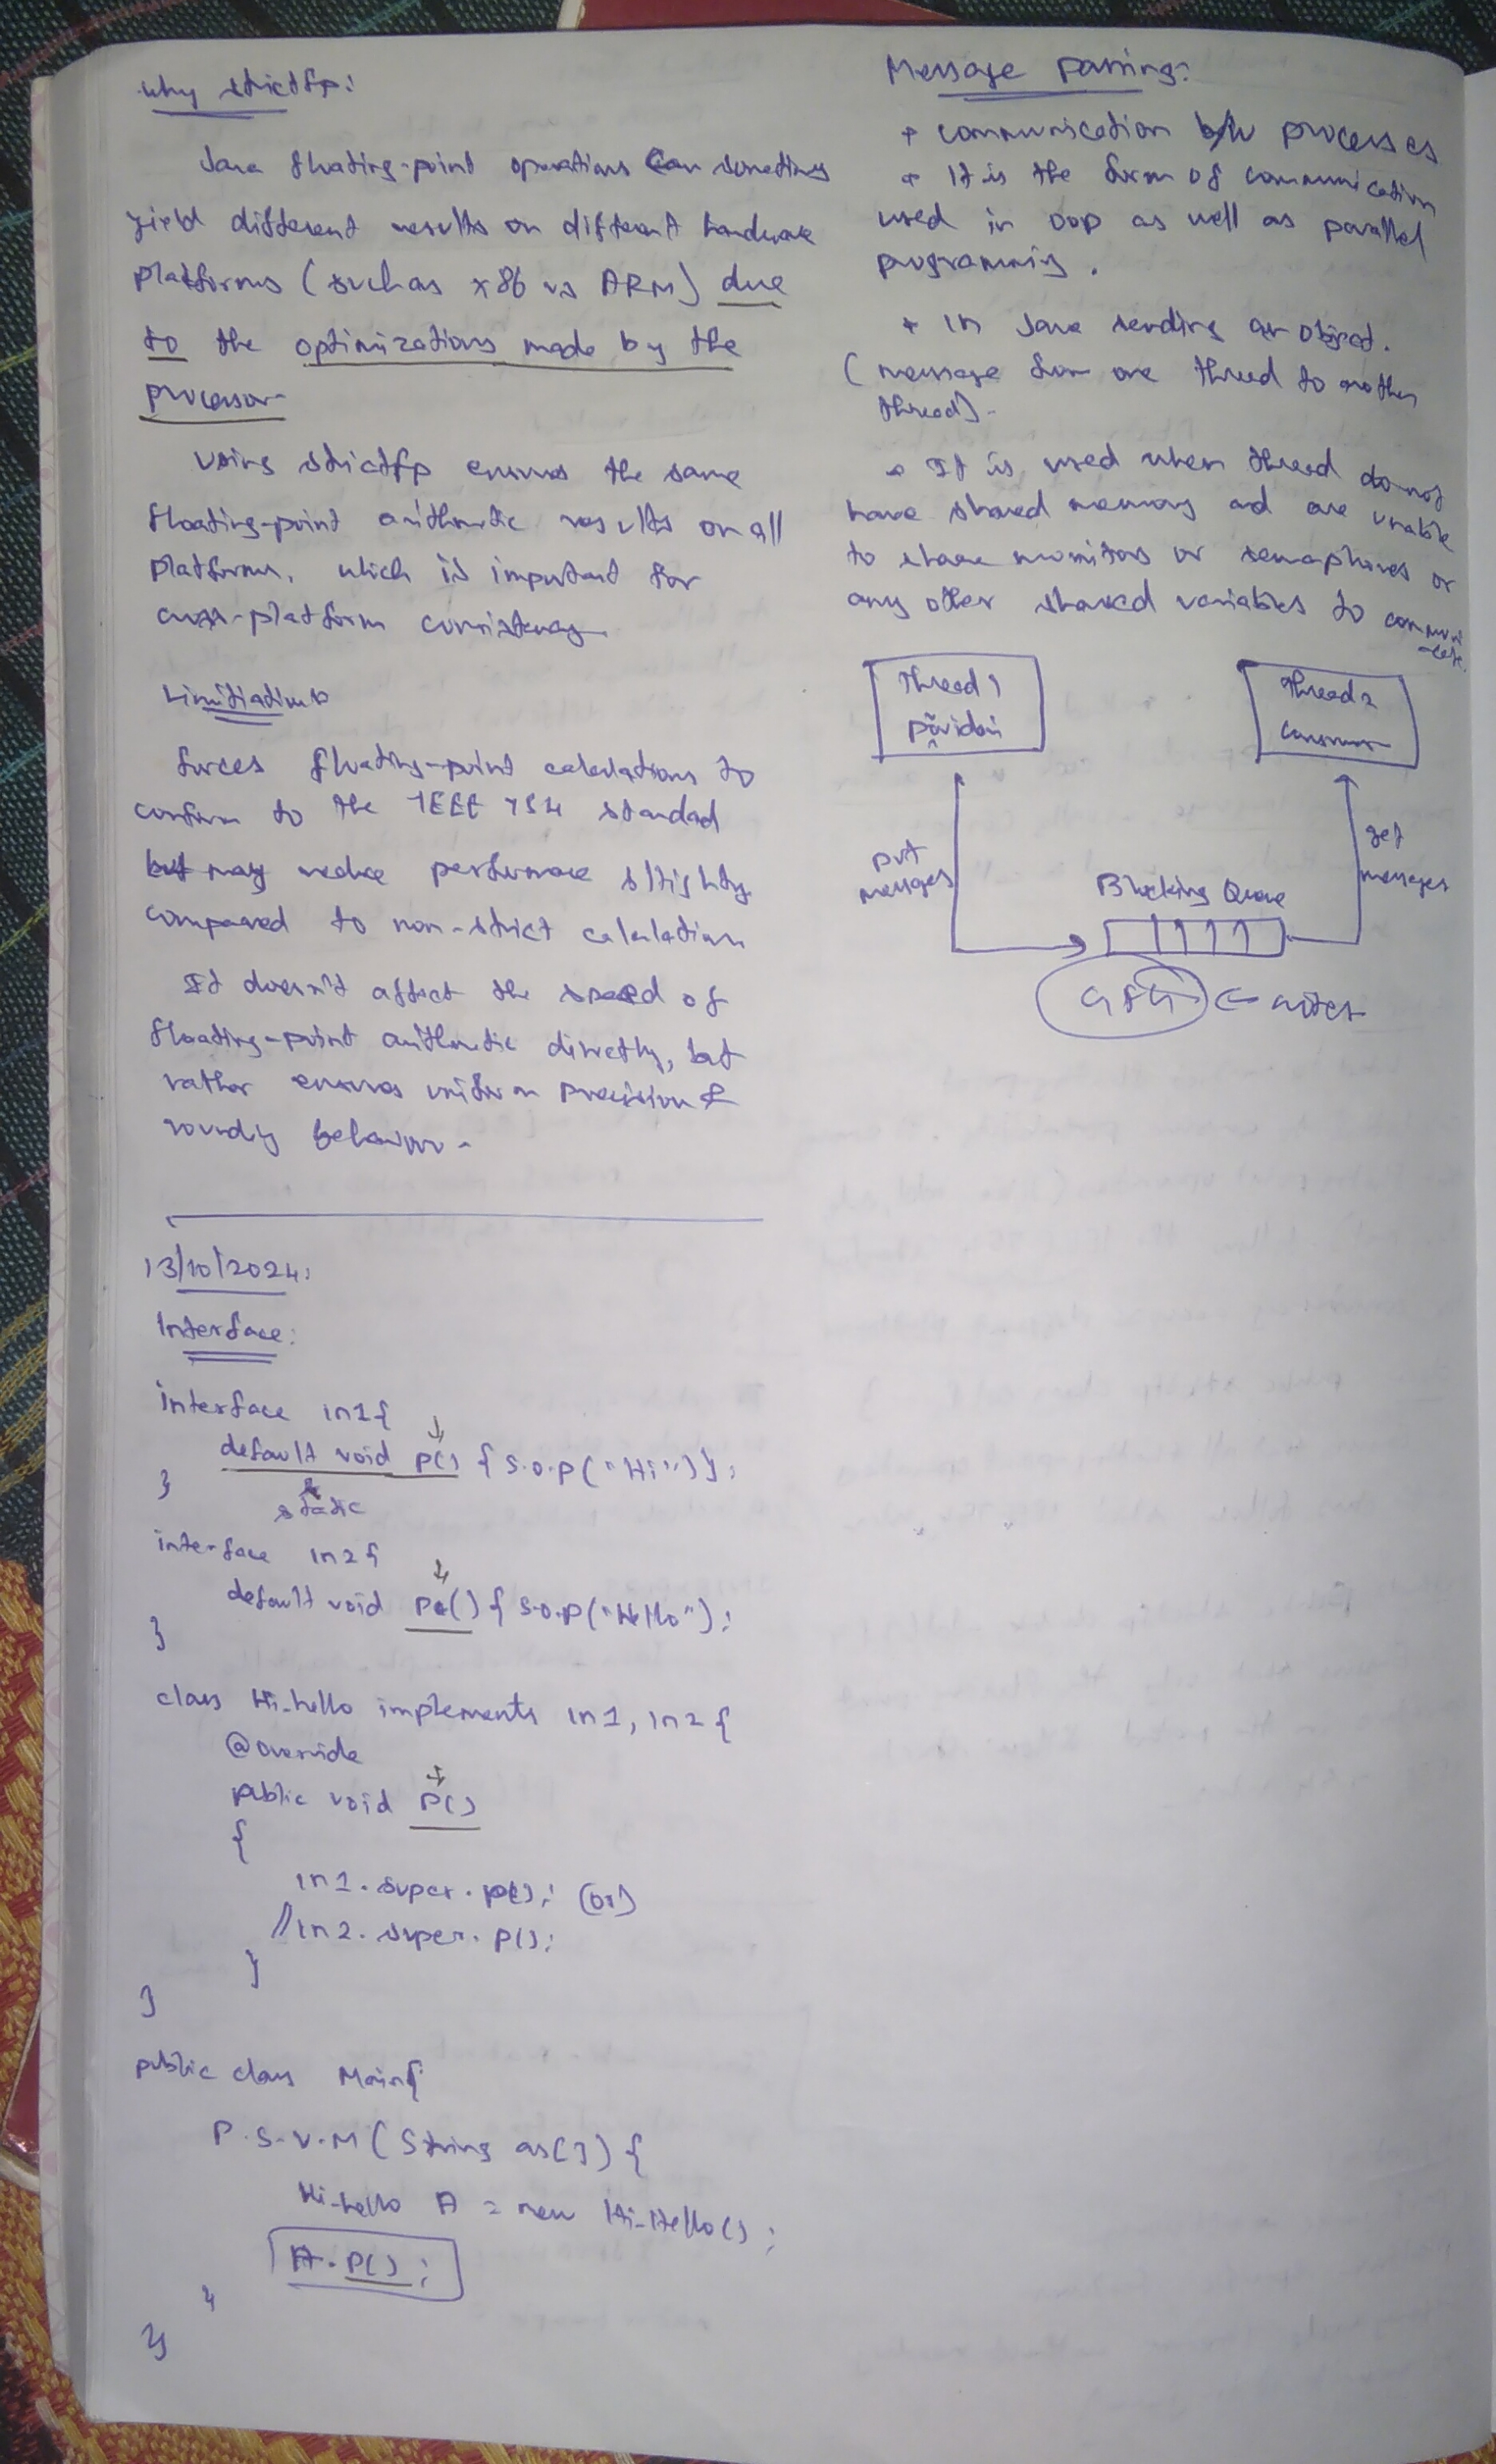 Why strictfp:
Java floating-point operations can sometimes
yield different results on different hardware
platforms (such as x86 vs ARM) due
to the optimizations made by the
processor
Using strictfp ensures the same
floating-point arithmetic results on all
platforms, which is important for
cross-platform consistency
Limitiations
forces floating-point calculations to
conform to the IEEE 754 standard
but may reduce performance slightly
compared to non-strict calculation
It doesn't affect the speed of
floating-point arithmetic directly, but
rather ensures uniform precision &
rounding behaviour.
13/10/2024:
Interface:
interface in1{
default void p() { S.O.P("Hi")};
}
static
interface in2{
default void p() { S.O.P("Hello");
}
class Hi-hello implements in1, in2 {
@override
public void P()
{
in1.super.p(); (or)
//in2.super.p();
}
}
public class Main{
P.S.V.M (String as[]) {
Hi-hello A = new Hi-Hello();
A.P();
}
}
Message Passing:
* communication b/w processes
* It is the form of communication
used in OOP as well as parallel
programming.
* In Java sending an object.
(message from one thread to another
thread).
* It is used when thread do not
have shared memory and are unable
to share monitors or semaphores or
any other shared variables to communi
-cate.
Thread 1
Thread 2
consumer
put
messages
get
messages
Blocking Queue
GFG ← notes